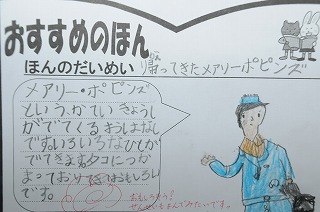 おすすめのほん
ほんのだいめい
帰ってきたメアリーポピンズ
メアリー・ポピンズ
というかていきょうし
がでてくるおはなし
です。いろいろなひとが
でてきます。タコにつか
まって
おもしろい
です。
おもしろそう!
せんせいもよんでみたいです。